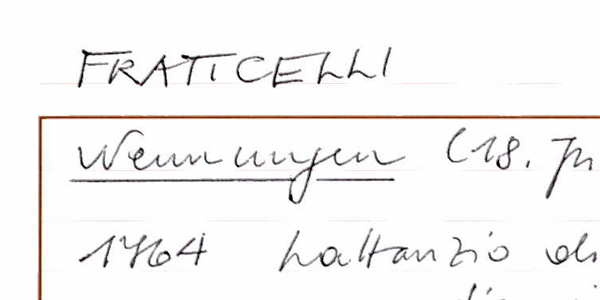 FRATICELLI
Wennungen (18. Jh
1764 Lattanzio di